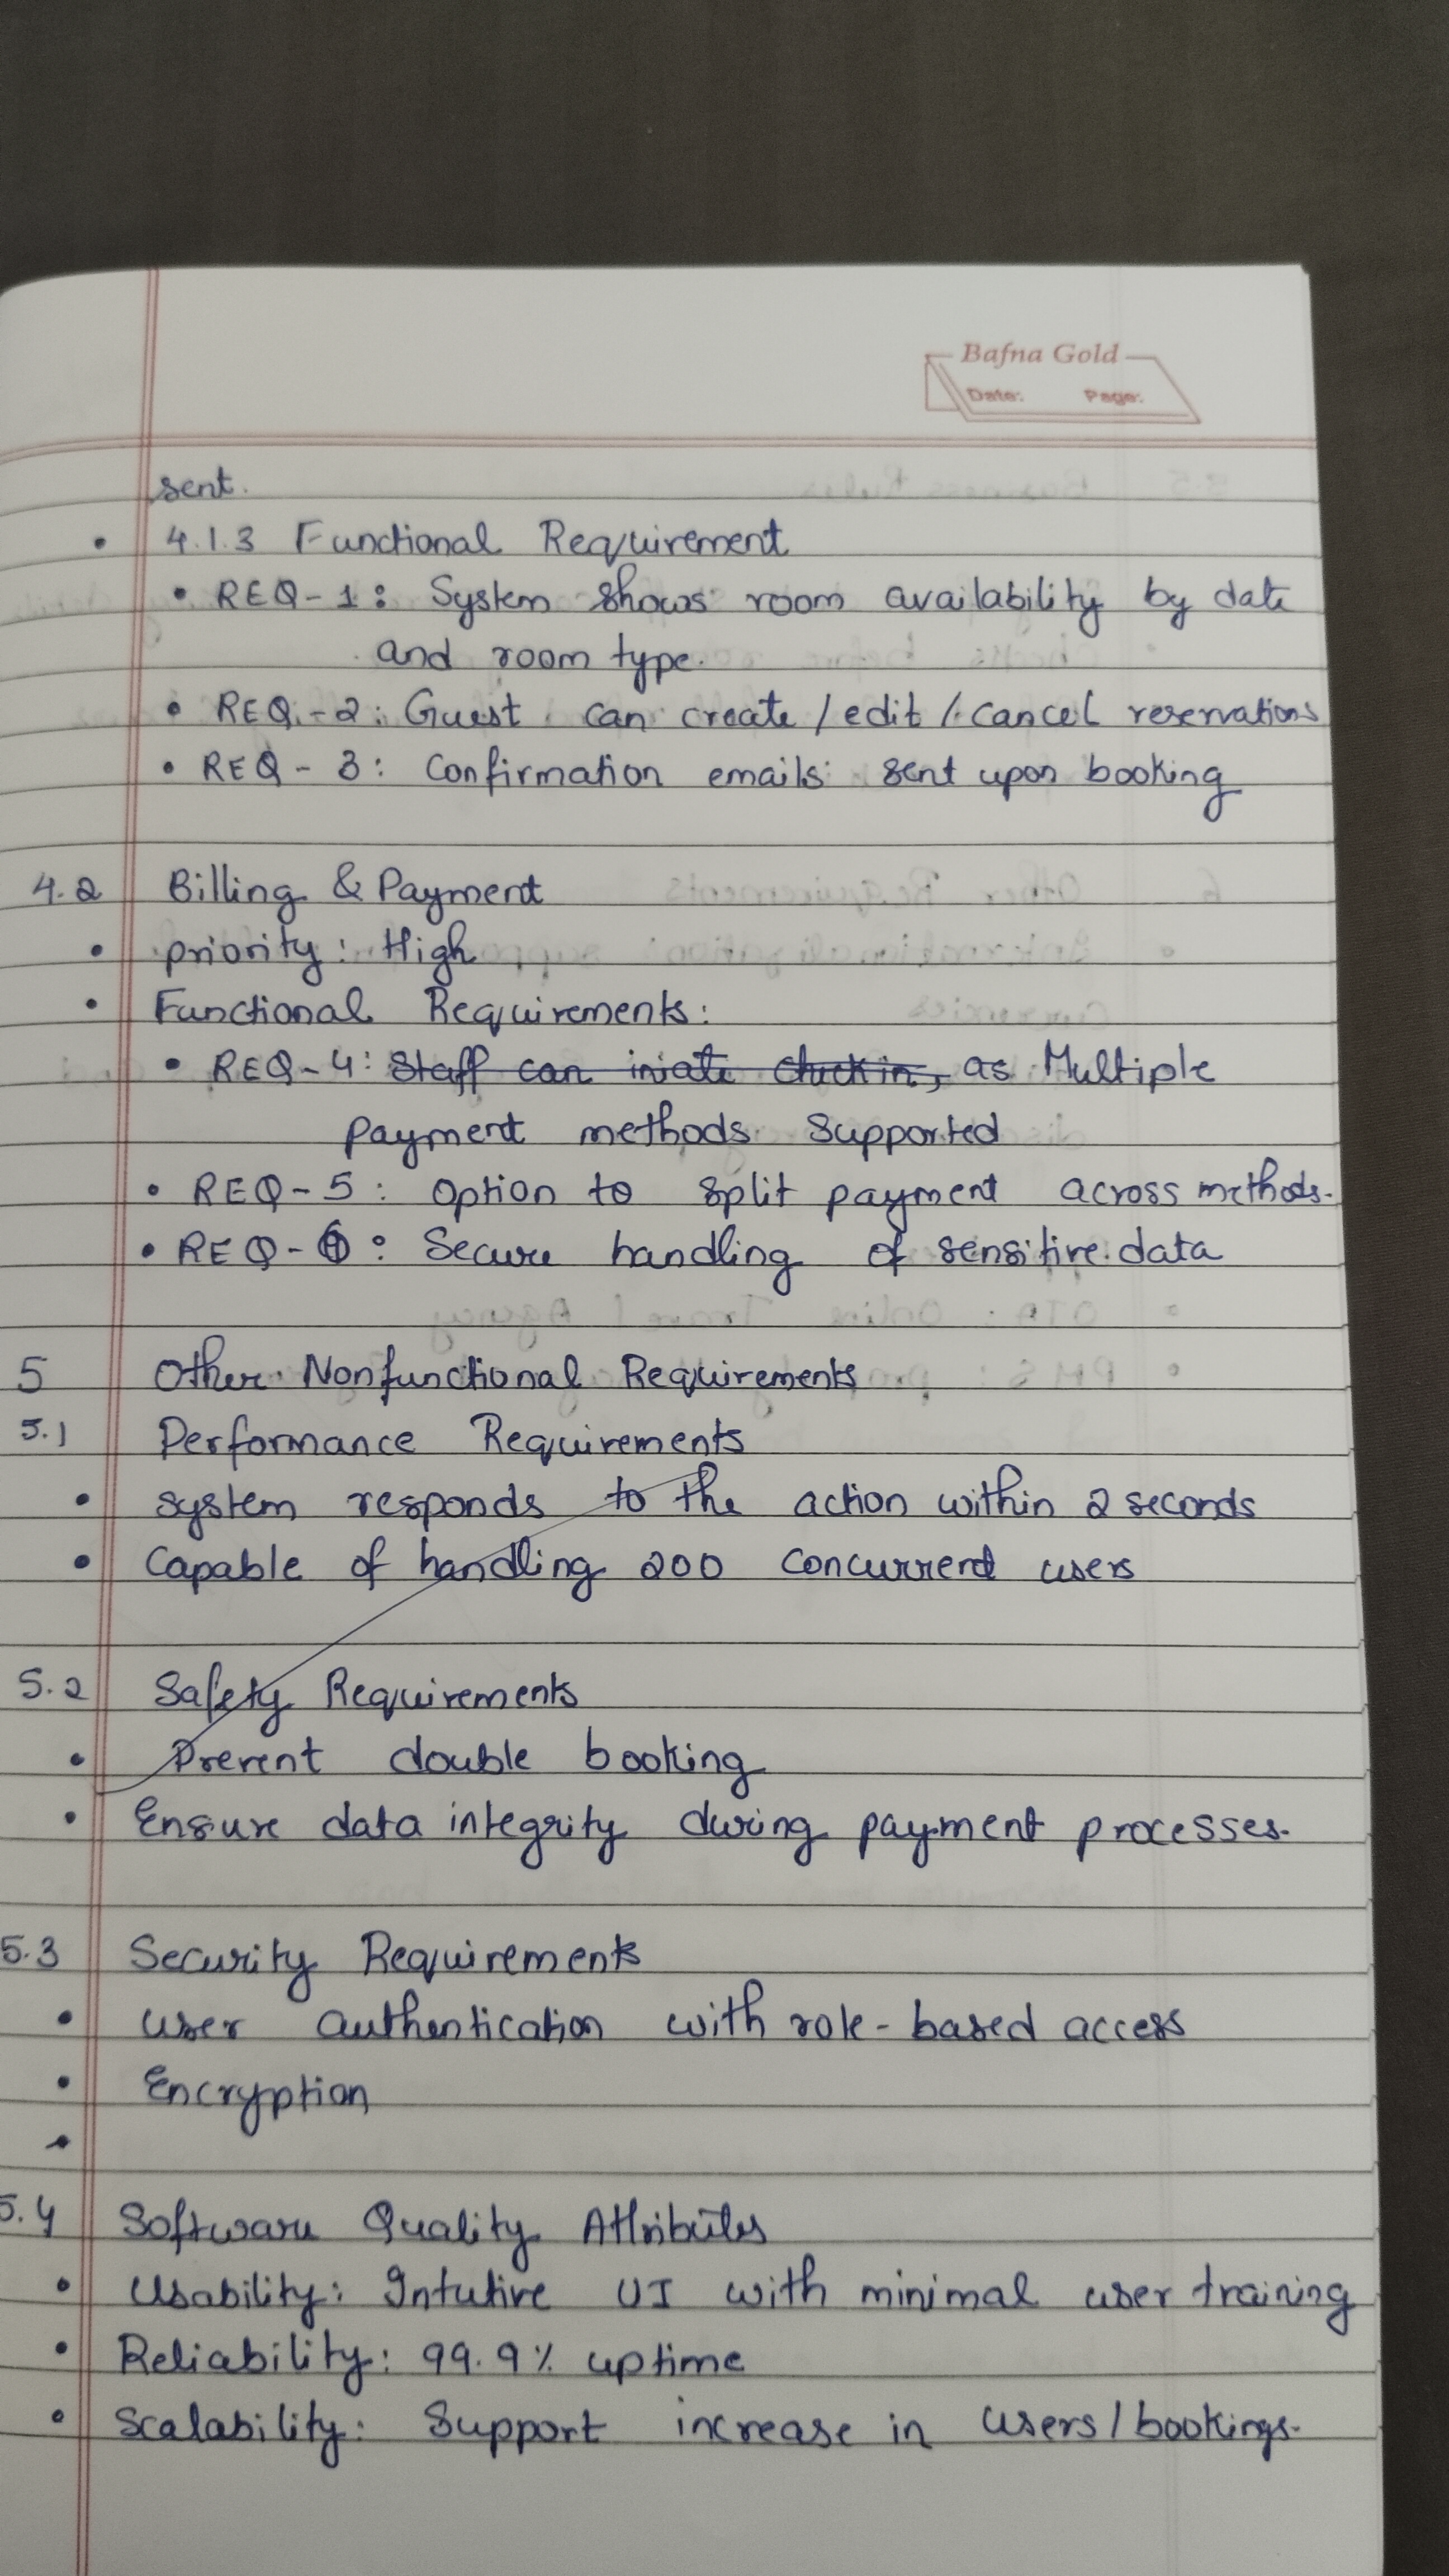 Bafna Gold
Date: Page:
sent.
• 4.1.3 Functional Requirement
• REQ-1: System shows room availability by date
and room type.
• REQ.-2: Guest can create/edit/cancel reservations
• REQ-3: Confirmation emails sent upon booking
4.2 Billing & Payment
• priority: High
• Functional Requirements:
• REQ-4: Staff can iniate check in, as Multiple
payment methods supported
• REQ-5: Option to split payment across methods.
• REQ-6: Secure handling of sensitive data
5 Other Nonfunctional Requirements
5.1 Performance Requirements
• system responds to the action within 2 seconds
• Capable of handling 200 concurrent users
5.2 Safety Requirements
• Prevent double booking
• Ensure data integrity during payment processes.
5.3 Security Requirements
• User authentication with role-based access
• Encryption
•
5.4 Software Quality Attributes
• Usability: Intutive UI with minimal user training
• Reliability: 99.9% uptime
• Scalability: Support increase in users/bookings.